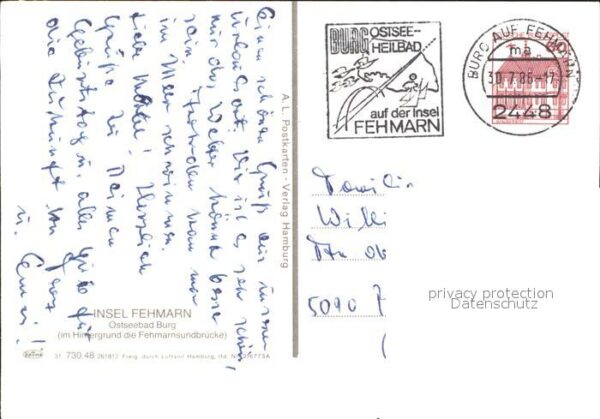 Einen schönen Gruß aus unserem
Urlaubsort. Hier ist es sehr schön,
nur das Wetter könnte besser
sein. Trotzdem kann man
im Meer schwimmen.
Liebe! Herzlich
Grüße zu Deinem
Geburtstag u. alles Gute für
die Zukunft von
u.
A. L. Postkarten · Verlag Hamburg
INSEL FEHMARN
Ostseebad Burg
(im Hintergrund die Fehmarnsundbrücke)
31 730.48
BURG OSTSEE-
HEILBAD
auf der Insel
FEHMARN
BURG AUF FEHMARN
ma
30.7.86-17
2448
Familie
Willi
5090
privacy protection
Datenschutz